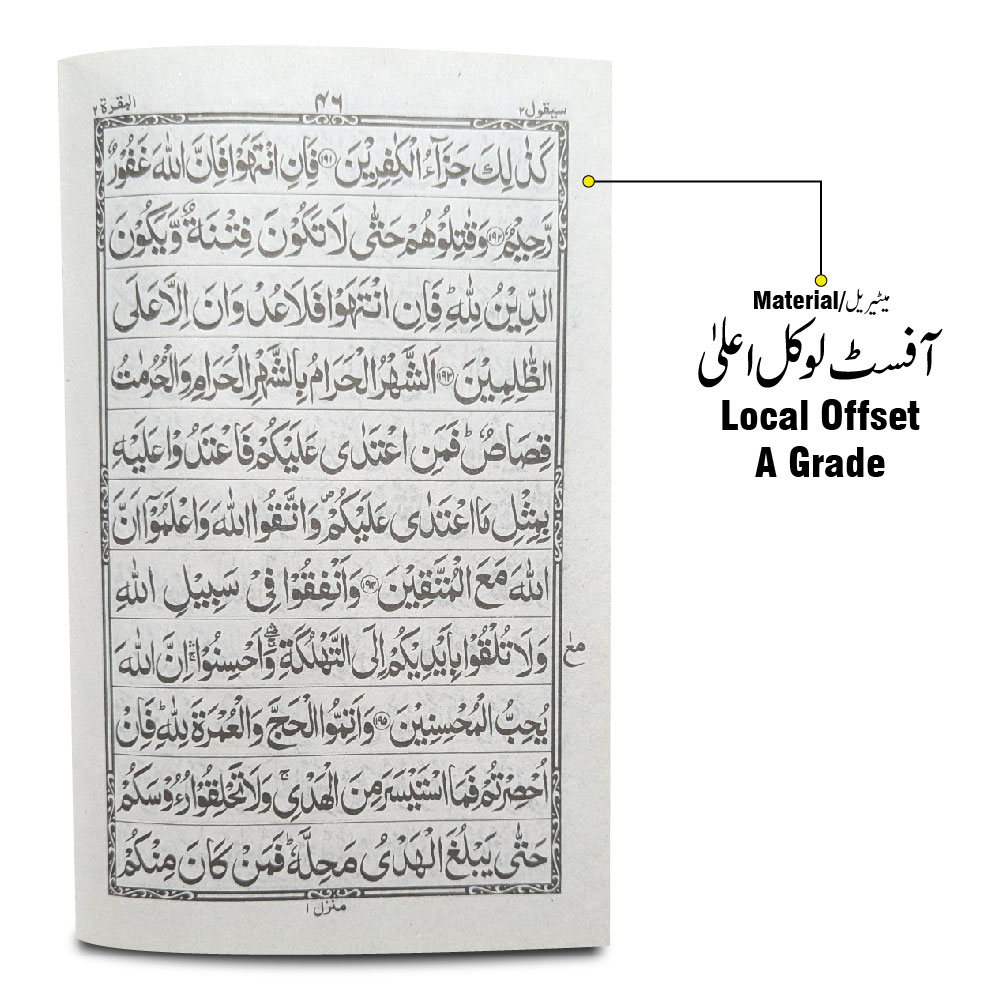 البقرة ٢
٤٦
سيقول ٢
كَذٰلِكَ جَزَآءُ الْكٰفِرِيْنَ ﴿١٩١﴾ فَاِنِ انْتَهَوْا فَاِنَّ اللّٰهَ غَفُوْرٌ
رَّحِيْمٌ ﴿١٩٢﴾ وَقٰتِلُوْهُمْ حَتّٰى لَا تَكُوْنَ فِتْنَةٌ وَّيَكُوْنَ
الدِّيْنُ لِلّٰهِ ؕ فَاِنِ انْتَهَوْا فَلَا عُدْوَانَ اِلَّا عَلَى
الظّٰلِمِيْنَ ﴿١٩٣﴾ اَلشَّهْرُ الْحَرَامُ بِالشَّهْرِ الْحَرَامِ وَالْحُرُمٰتُ
قِصَاصٌ ؕ فَمَنِ اعْتَدٰى عَلَيْكُمْ فَاعْتَدُوْا عَلَيْهِ
بِمِثْلِ مَا اعْتَدٰى عَلَيْكُمْ ۪ وَاتَّقُوا اللّٰهَ وَاعْلَمُوْۤا اَنَّ
اللّٰهَ مَعَ الْمُتَّقِيْنَ ﴿١٩٤﴾ وَاَنْفِقُوْا فِيْ سَبِيْلِ اللّٰهِ
وَلَا تُلْقُوْا بِاَيْدِيْكُمْ اِلَى التَّهْلُكَةِ ۛۚ وَاَحْسِنُوْا ۛۚ اِنَّ اللّٰهَ
يُحِبُّ الْمُحْسِنِيْنَ ﴿١٩٥﴾ وَاَتِمُّوا الْحَجَّ وَالْعُمْرَةَ لِلّٰهِ ؕ فَاِنْ
اُحْصِرْتُمْ فَمَا اسْتَيْسَرَ مِنَ الْهَدْيِ ۚ وَلَا تَحْلِقُوْا رُءُوْسَكُمْ
حَتّٰى يَبْلُغَ الْهَدْيُ مَحِلَّهٗ ؕ فَمَنْ كَانَ مِنْكُمْ
منزل ١
Material/میٹیریل
آفسٹ لوکل اعلیٰ
Local Offset
A Grade